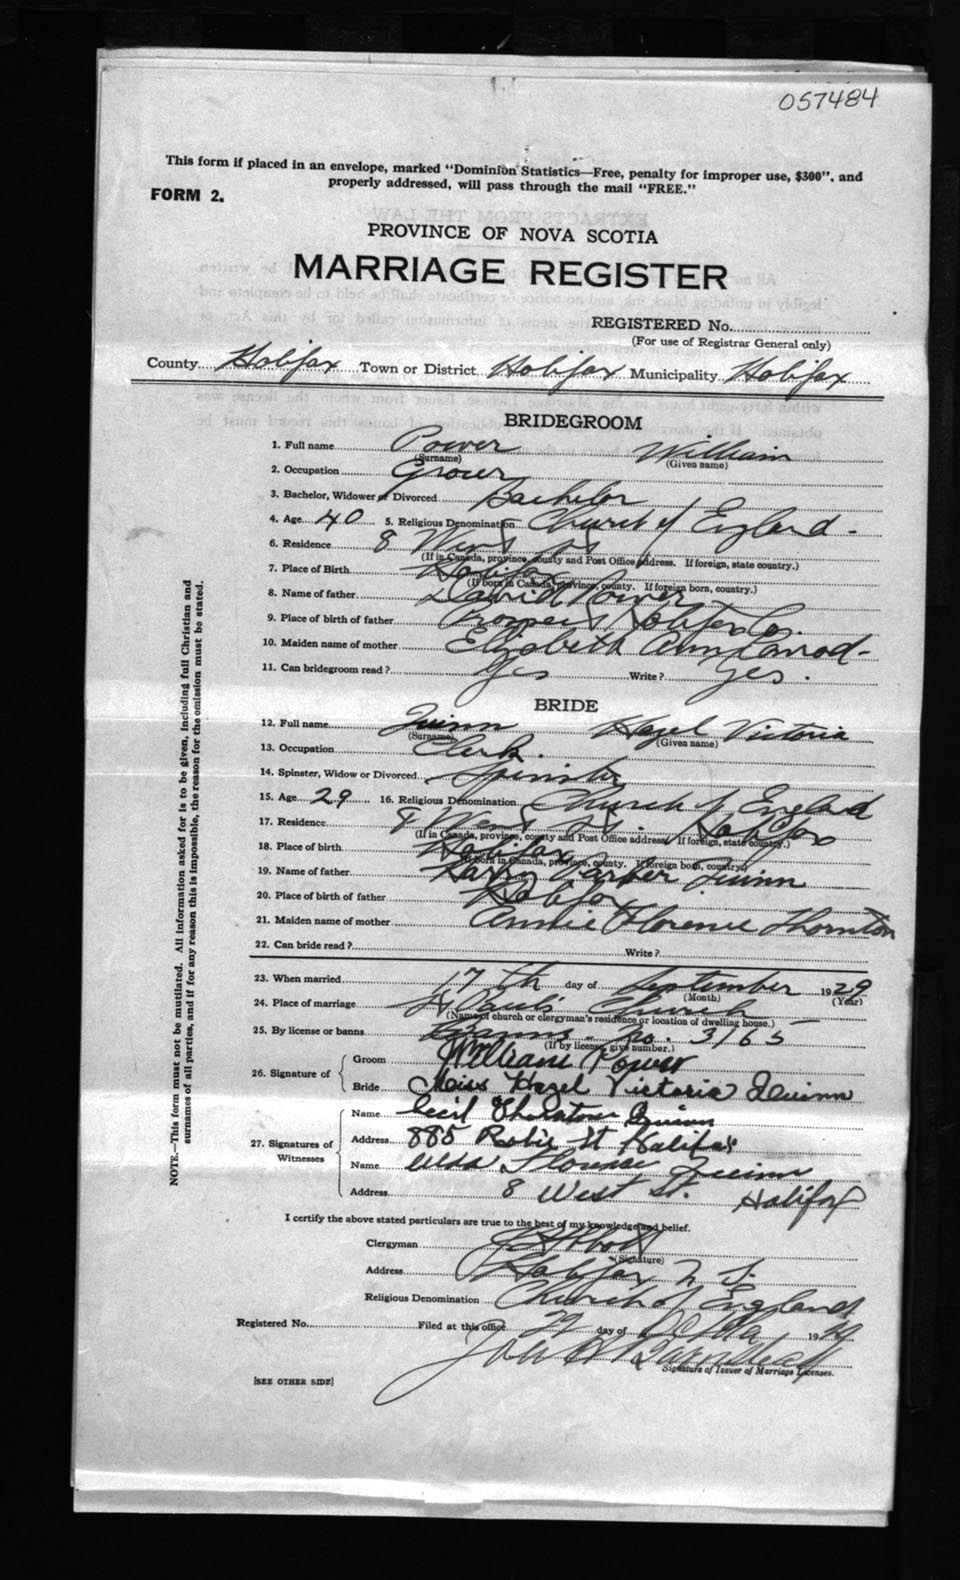 057484
This form if placed in an envelope, marked "Dominion Statistics—Free, penalty for improper use, $300", and
properly addressed, will pass through the mail "FREE."
FORM 2.
PROVINCE OF NOVA SCOTIA
MARRIAGE REGISTER
REGISTERED No.
(For use of Registrar General only)
County Halifax Town or District Halifax Municipality Halifax
BRIDEGROOM
1. Full name Power William
(Surname) (Given name)
2. Occupation Grocer
3. Bachelor, Widower or Divorced Bachelor
4. Age 40 5. Religious Denomination Church of England
6. Residence 8 West St
(If in Canada, province, county and Post Office address. If foreign, state country.)
7. Place of Birth Halifax
(If born in Canada, province, county. If foreign born, country.)
8. Name of father David Power
9. Place of birth of father Prospect Halifax Co.
10. Maiden name of mother Elizabeth Ann
11. Can bridegroom read? Yes Write? Yes.
BRIDE
12. Full name Quinn Hazel Victoria
(Surname) (Given name)
13. Occupation Clerk.
14. Spinster, Widow or Divorced Spinster
15. Age 29 16. Religious Denomination Church of England
17. Residence 8 West St. Halifax
(If in Canada, province, county and Post Office address. If foreign, state country.)
18. Place of birth Halifax
(If born in Canada, province, county. If foreign born, country.)
19. Name of father Harry Parker Quinn
20. Place of birth of father Halifax
21. Maiden name of mother Annie Florence Thornton
22. Can bride read? Write?
23. When married 17th day of September 1929
(Month) (Year)
24. Place of marriage St Paul's Church
(Name of church or clergyman's residence or location of dwelling house.)
25. By license or banns Banns. No. 3765
(If by license, give number.)
26. Signature of Groom William Power
Bride Miss Hazel Victoria Quinn
27. Signatures of Witnesses Name Cecil Thornton Quinn
Address 885 Robie St Halifax
Name Florence Quinn
Address 8 West St. Halifax
I certify the above stated particulars are true to the best of my knowledge and belief.
Clergyman
(Signature)
Address Halifax N. S.
Religious Denomination Church of England
Registered No. Filed at this office day of 19
Signature of Issuer of Marriage Licenses.
[SEE OTHER SIDE]
NOTE.—This form must not be mutilated. All information asked for is to be given, including full Christian and
surnames of all parties, and if for any reason this is impossible, the reason for the omission must be stated.